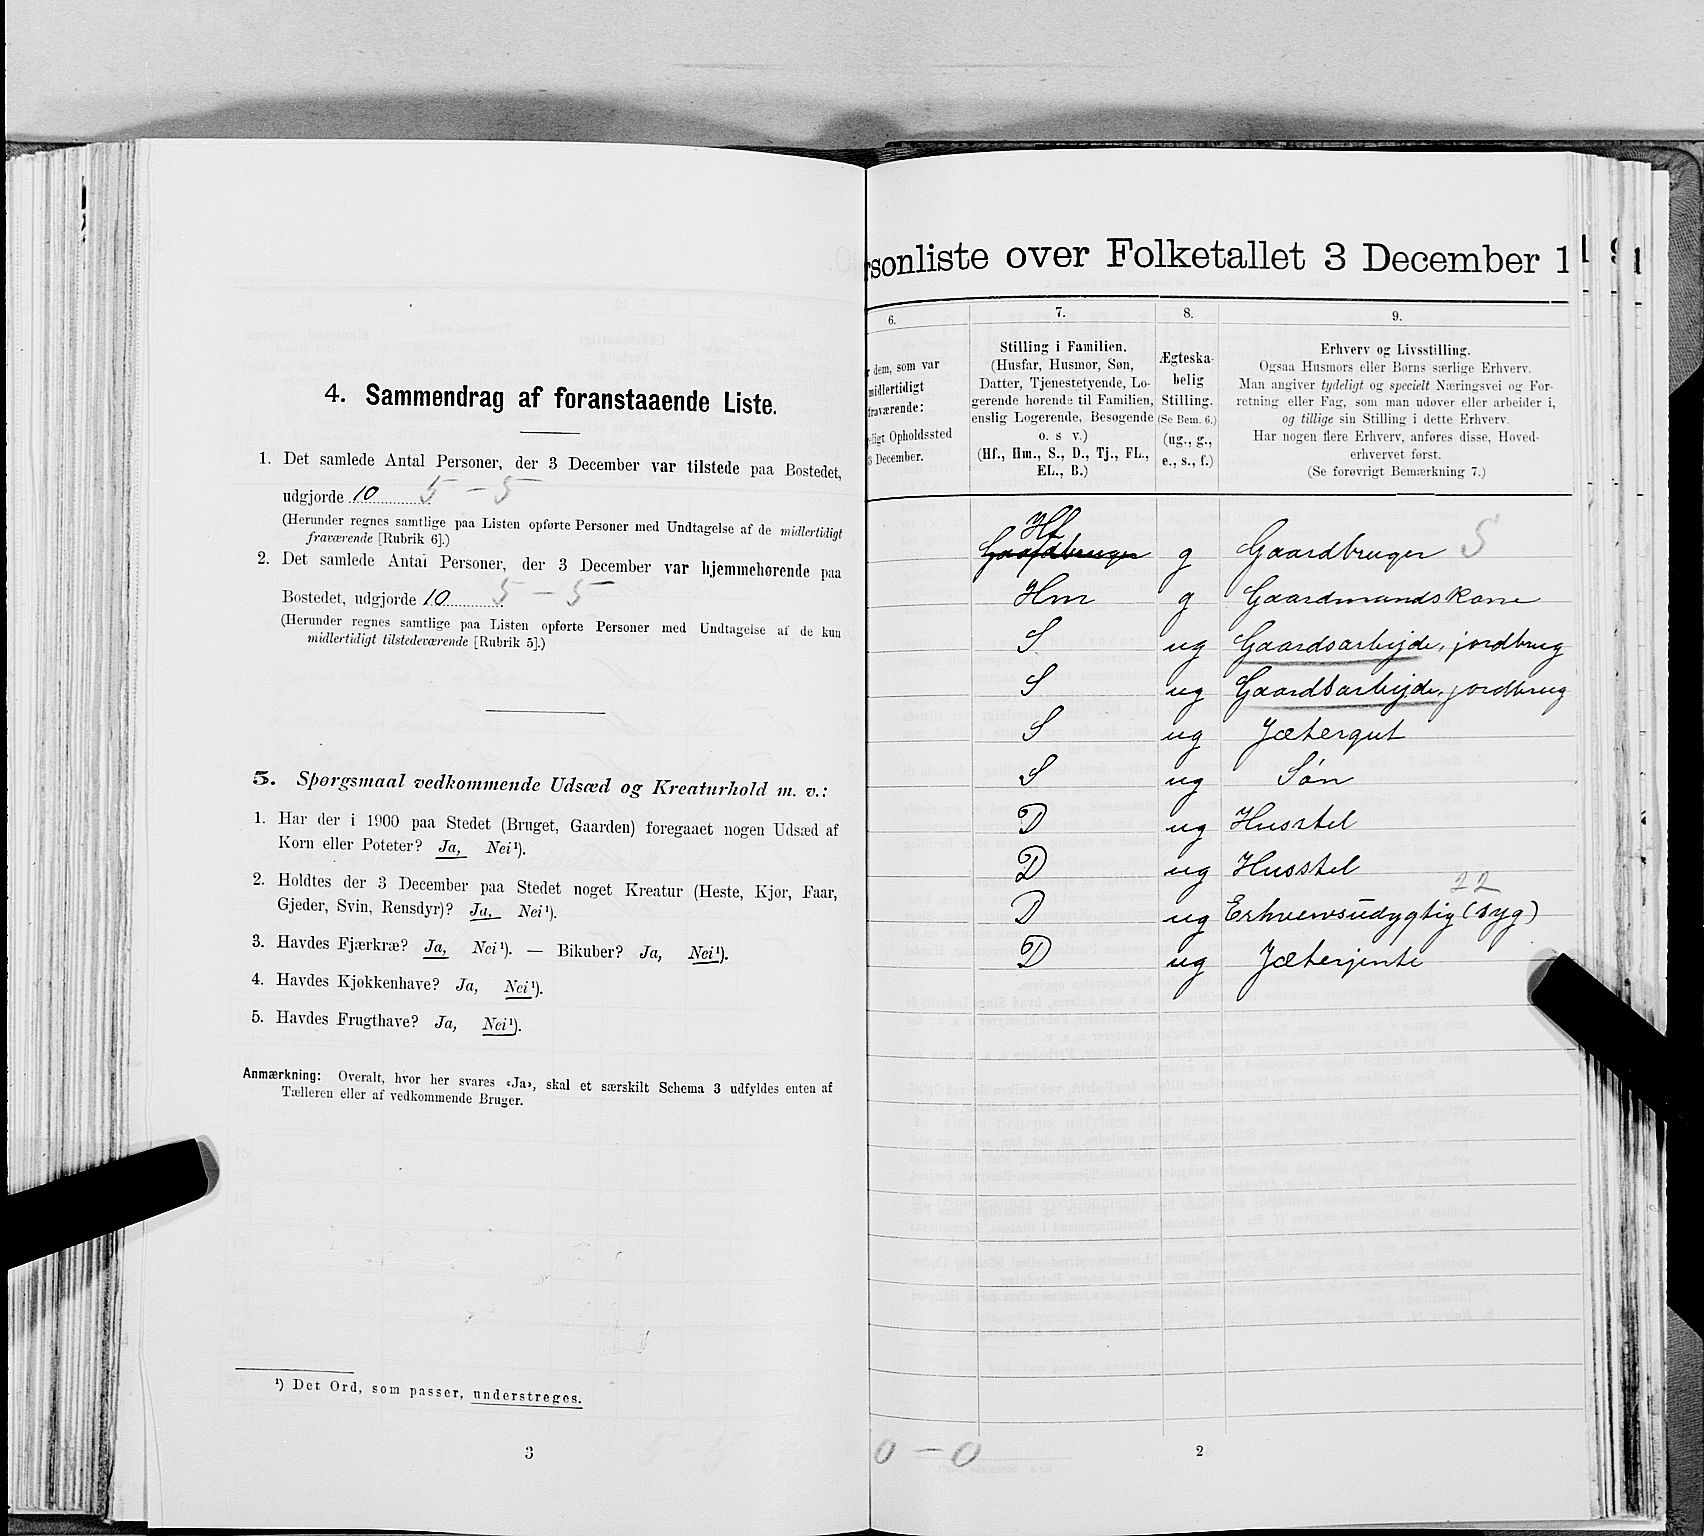 4. Sammendrag af foranstaaende Liste.
1. Det samlede Antal Personer, der 3 December var tilstede paa Bostedet,
udgjorde 10 5 – 5
(Herunder regnes samtlige paa Listen opførte Personer med Undtagelse af de midlertidigt
fraværende [Rubrik 6].)
2. Det samlede Antal Personer, der 3 December var hjemmehørende paa
Bostedet, udgjorde 10 5 – 5
(Herunder regnes samtlige paa Listen opførte Personer med Undtagelse af de kun
midlertidigt tilstedeværende [Rubrik 5].)
5. Spørgsmaal vedkommende Udsæd og Kreaturhold m. v.:
1. Har der i 1900 paa Stedet (Bruget, Gaarden) foregaaet nogen Udsæd af
Korn eller Poteter? Ja, Nei¹).
2. Holdtes der 3 December paa Stedet noget Kreatur (Heste, Kjør, Faar,
Gjeder, Svin, Rensdyr)? Ja, Nei¹).
3. Havdes Fjærkræ? Ja, Nei¹). — Bikuber? Ja, Nei¹).
4. Havdes Kjøkkenhave? Ja, Nei¹).
5. Havdes Frugthave? Ja, Nei¹).
Anmærkning: Overalt, hvor her svares «Ja», skal et særskilt Schema 3 udfyldes enten af
Tælleren eller af vedkommende Bruger.
¹) Det Ord, som passer, understreges.
3
rsonliste over Folketallet 3 December 1
6.
r dem, som var
midlertidigt
fraværende:
eligt Opholdssted
3 December.
7.
Stilling i Familien.
(Husfar, Husmor, Søn,
Datter, Tjenestetyende, Lo-
gerende hørende til Familien,
enslig Logerende, Besøgende
o. s v.)
(Hf., Hm., S., D., Tj., FL.,
EL., B.)
8.
Ægteska-
belig
Stilling.
(Se Bem. 6.)
(ug., g.,
e., s., f.)
9.
Erhverv og Livsstilling.
Ogsaa Husmors eller Børns særlige Erhverv.
Man angiver tydeligt og specielt Næringsvei og For-
retning eller Fag, som man udøver eller arbeider i,
og tillige sin Stilling i dette Erhverv.
Har nogen flere Erhverv, anføres disse, Hoved-
erhvervet først.
(Se forøvrigt Bemærkning 7.)
Hf
Gaardbruger g Gaardbruger S
Hm g Gaardmandskone
S ug Gaardsarbejde, jordbrug
S ug Gaardsarbejde, jordbrug
S ug Jætergut
S ug Søn
D ug Husstel
D ug Husstel
22
D ug Erhvervsudygtig (syg)
D ug Jæterjente
0 – 0
2